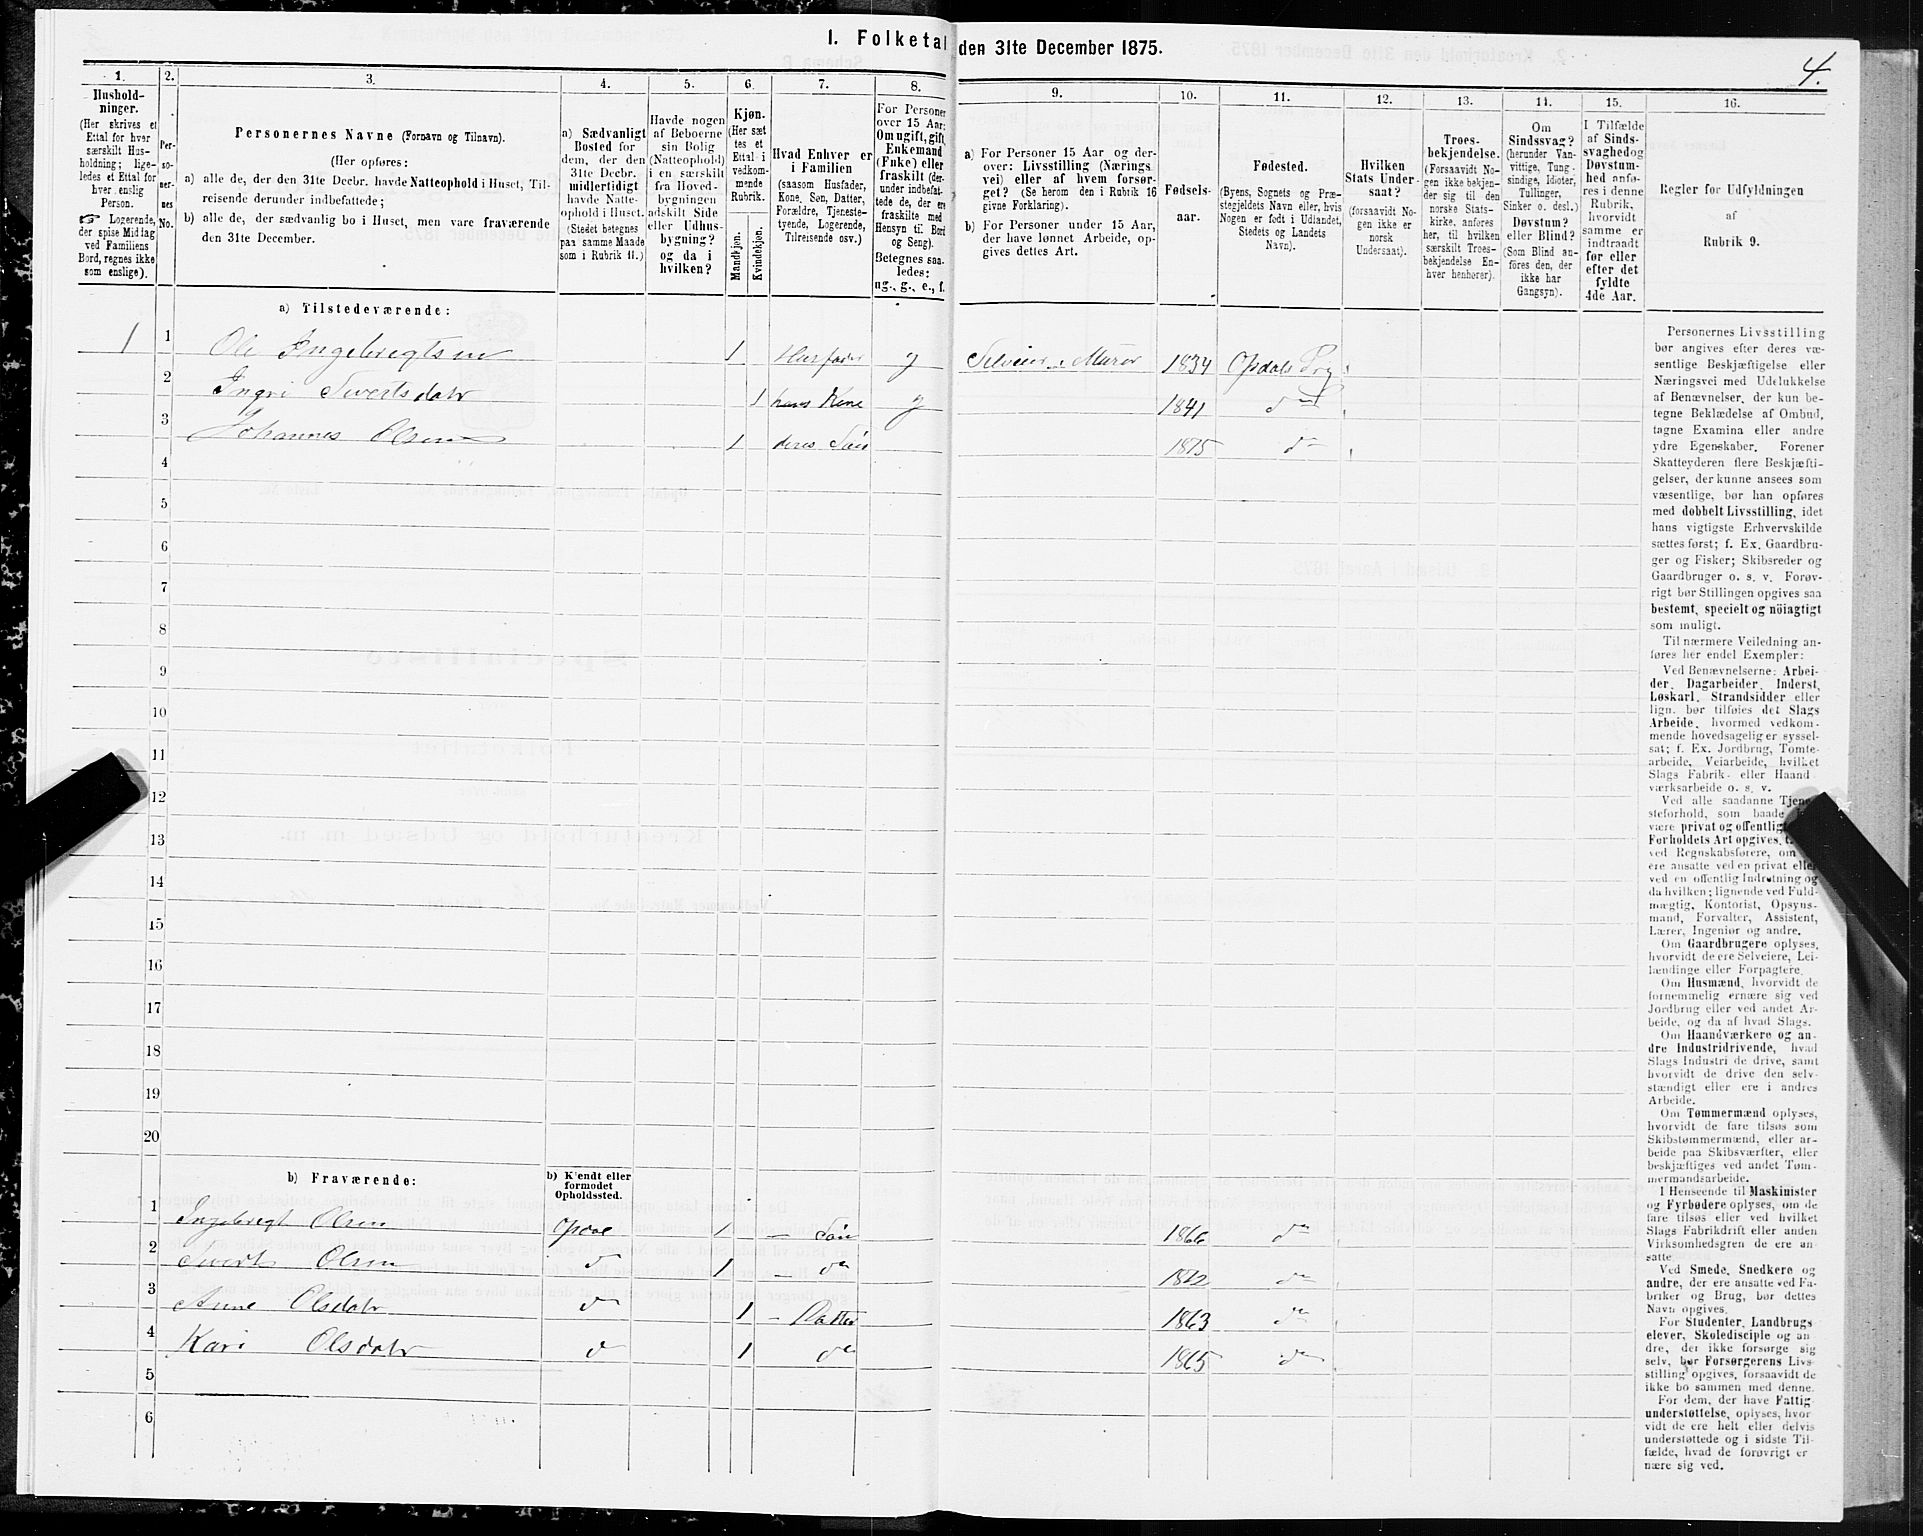 I. Folketal den 31te December 1875.
4.
1.
Hushold-
ninger.
(Her skrives et
Ettal for hver
særskilt Hus-
holdning; lige-
ledes et Ettal for
hver enslig
Person.
☞ Logerende,
der spise Middag
ved Familiens
Bord, regnes ikke
som enslige).
2.
Per-
so-
ner-
nes
No.
3.
Personernes Navne (Fornavn og Tilnavn).
(Her opføres:
a) alle de, der den 31te Decbr. havde Natteophold i Huset, Til-
reisende derunder indbefattede;
b) alle de, der sædvanlig bo i Huset, men vare fraværende
den 31te December.
4.
a) Sædvanligt
Bosted for
dem, der den
31te Decbr.
midlertidigt
havde Natte-
ophold i Huset.
(Stedet betegnes
paa samme Maade
som i Rubrik 11.)
5.
Havde nogen
af Beboerne
sin Bolig
(Natteophold)
i en særskilt
fra Hoved-
bygningen
adskilt Side
eller Udhus-
bygning?
og da i
hvilken?
6.
Kjøn.
(Her sæt
tes et
Ettal i
vedkom-
mende
Rubrik.
Mandkjøn.
Kvindekjøn.
7.
Hvad Enhver er
i Familien
(saasom Husfader,
Kone, Søn, Datter,
Forældre, Tjeneste-
tyende, Logerende,
Tilreisende osv.)
8.
For Personer
over 15 Aar:
Om ugift, gift,
Enkemand
(Enke) eller
fraskilt (der-
under indbefat-
tede de, der ere
fraskilte med
Hensyn til Bord
og Seng).
Betegnes saa-
ledes:
ug., g., e., f.
9.
a) For Personer 15 Aar og der-
over: Livsstilling (Nærings
vei) eller af hvem forsør-
get? (Se herom den i Rubrik 16
givne Forklaring).
b) For Personer under 15 Aar,
der have lønnet Arbeide, op-
gives dettes Art.
10.
Fødsels-
aar.
11.
Fødested.
(Byens, Sognets og Præ-
stegjeldets Navn eller, hvis
Nogen er født i Udlandet,
Stedets og Landets
Navn).
12.
Hvilken
Stats Under-
saat?
(forsaavidt No-
gen ikke er
norsk
Undersaat).
13.
Troes-
bekjendelse.
(Forsaavidt No-
gen ikke bekjen-
der sig til den
norske Stats-
kirke, anføres
her, til hvilken
særskilt Troes-
bekjendelse En-
hver henhører).
14.
Om
Sindssvag?
(herunder Van-
vittige, Tung-
sindige, Idioter,
Tullinger,
Sinker o. desl.)
Døvstum?
eller Blind?
(Som Blind an-
føres den, der
ikke har
Gangsyn).
15.
I Tilfælde
af Sinds-
svaghed og
Døvstum-
hed anfø-
res i denne
Rubrik,
hvorvidt
samme er
indtraadt
før eller
efter det
fyldte
4de Aar.
16.
Regler for Udfyldningen
af
Rubrik 9.
a) Tilstedeværende:
1 1 Ole Ingebregtsen 1 Husfader g Selveier Murer 1834 Opdals Prg.
2 Ingri Sivertsdatr 1 hans Kone g 1841 do
3 Johannes Olsen 1 deres Søn 1875 do
4
5
6
7
8
9
10
11
12
13
14
15
16
17
18
19
20
b) Fraværende:
b) Kjendt eller
formodet
Opholdssted.
1 Ingebregt Olsen Opdal 1 – Søn 1866 do
2 Sivert Olsen do 1 – do 1872 do
3 Anne Olsdatr do 1 – Datter 1863 do
4 Kari Olsdatr do 1 do 1865 do
5
6
Personernes Livsstilling
bør angives efter deres væ-
sentlige Beskjæftigelse eller
Næringsvei med Udelukkelse
af Benævnelser, der kun be-
tegne Beklædelse af Ombud,
tagne Examina eller andre
ydre Egenskaber. Forener
Skatteyderen flere Beskjæfti-
gelser, der kunne ansees som
væsentlige, bør han opføres
med dobbelt Livsstilling, idet
hans vigtigste Erhvervskilde
sættes først; f. Ex. Gaardbru-
ger og Fisker; Skibsreder og
Gaardbruger o. s. v. Forøv-
rigt bør Stillingen opgives saa
bestemt, specielt og nöiagtigt
som muligt.
Til nærmere Veiledning an-
føres her endel Exempler:
Ved Benævnelserne: Arbei-
der, Dagarbeider, Inderst,
Løskarl, Strandsidder eller
lign. bør tilføies det Slags
Arbeide, hvormed vedkom-
mende hovedsagelig er syssel-
sat; f. Ex. Jordbrug, Tomte-
arbeide, Veiarbeide, hvilket
Slags Fabrik- eller Haand
værksarbeide o. s. v.
Ved alle saadanne Tjene-
steforhold, som baade
være privat og offentlig
Forholdets Art opgives,
ved Regnskabsførere, om
ere ansatte ved en privat eller
ved en offentlig Indretning og
da hvilken; lignende ved Fuld-
mægtig, Kontorist, Opsyns-
mand, Forvalter, Assistent,
Lærer, Ingeniør og andre.
Om Gaardbrugere oplyses,
hvorvidt de ere Selveiere, Lei-
lændinge eller Forpagtere.
Om Husmænd, hvorvidt de
fornemmelig ernære sig ved
Jordbrug eller ved andet Ar-
beide, og da af hvad Slags.
Om Haandværkere og an-
dre Industridrivende, hvad
Slags Industri de drive, samt
hvorvidt de drive den selv-
stændigt eller ere i andres
Arbeide.
Om Tømmermænd oplyses,
hvorvidt de fare tilsøs som
Skibstømmermænd, eller ar-
beide paa Skibsværfter, eller
beskjæftiges ved andet Tøm-
mermandsarbeide.
I Henseende til Maskinister
og Fyrbødere oplyses, om de
fare tilsøs eller ved hvilket
Slags Fabrikdrift eller anden
Virksomhedsgren de ere an-
satte.
Ved Smede, Snedkere og
andre, der ere ansatte ved Fa-
briker og Brug, bør dettes
Navn opgives.
For Studenter, Landbrugs
elever, Skoledisciple og an
dre, der ikke forsørge sig
selv, bør Forsørgerens Livs-
stilling opgives, forsaavidt de
ikke bo sammen med denne.
For dem, der have Fattig-
understøttelse, oplyses, hvor
vidt de ere helt eller delvis
understøttede og i sidste Til-
fælde, hvad de forøvrigt er
nære sig ved.